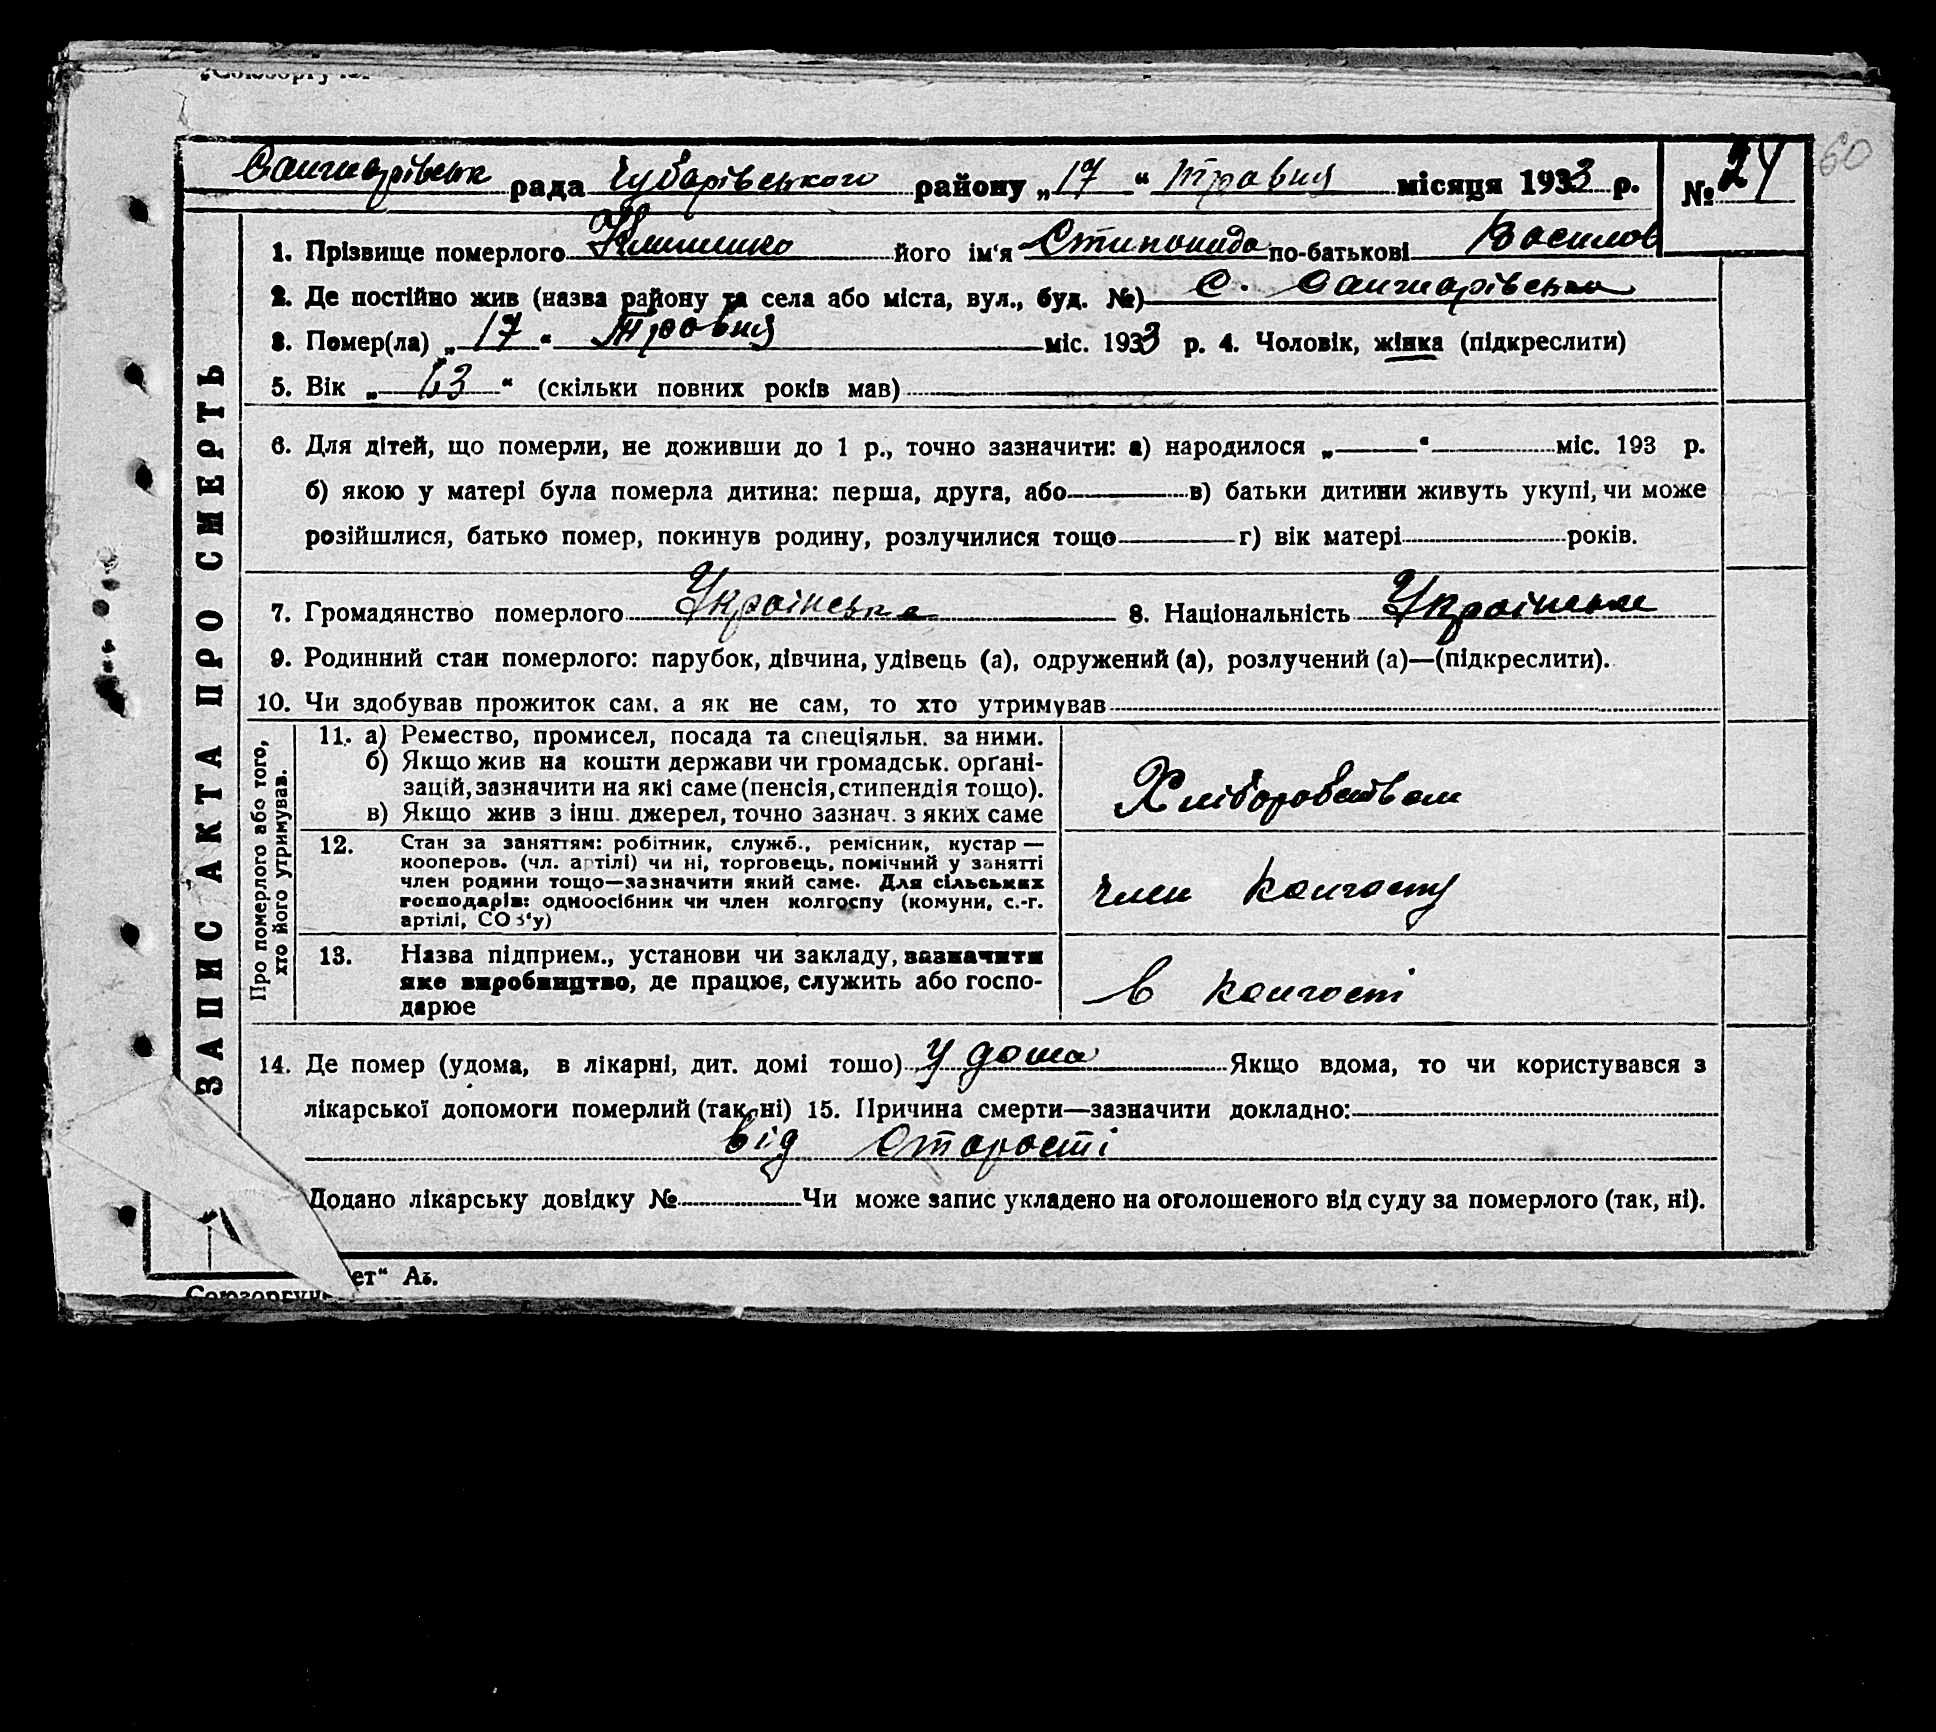 рада Чубарівського району „17“ травня місяця 1933 р. № 24
60
ЗАПИС АКТА ПРО СМЕРТЬ
1. Прізвище померлого його ім'я по-батькові Василов
2. Де постійно жив (назва району та села або міста, вул., буд. №) с.
3. Помер(ла) „17“ травня міс. 1933 р. 4. Чоловік, жінка (підкреслити)
5. Вік „ “ (скільки повних років мав)
6. Для дітей, що померли, не доживши до 1 р., точно зазначити: а) народилося „ “ міс. 193 р.
б) якою у матері була померла дитина: перша, друга, або в) батьки дитини живуть укупі, чи може
розійшлися, батько помер, покинув родину, розлучилися тощо г) вік матері років.
7. Громадянство померлого Українське 8. Національність Українське
9. Родинний стан померлого: парубок, дівчина, удівець (а), одружений (а), розлучений (а)—(підкреслити).
10. Чи здобував прожиток сам, а як не сам, то хто утримував
Про померлого або того,
хто його утримував.
11. а) Ремество, промисел, посада та спеціяльн. за ними.
б) Якщо жив на кошти держави чи громадськ. органі-
зацій, зазначити на які саме (пенсія, стипендія тощо).
в) Якщо жив з інш. джерел, точно зазнач. з яких саме
Хліборобством
12. Стан за заняттям: робітник, служб., ремісник, кустар —
кооперов. (чл. артілі) чи ні, торговець, помічний у занятті
член родини тощо—зазначити який саме. Для сільських
господарів: одноосібник чи член колгоспу (комуни, с.-г.
артілі, СОЗ'у)
член колгоспу
13. Назва підприєм., установи чи закладу, зазначити
яке виробництво, де працює, служить або госпо-
дарює
в колгоспі
14. Де помер (удома, в лікарні, дит. домі тошо) у дома Якщо вдома, то чи користувався з
лікарської допомоги померлий (так, ні) 15. Причина смерти—зазначити докладно:
від старості
Додано лікарську довідку № Чи може запис укладено на оголошеного від суду за померлого (так, ні).
ет“ Аз.